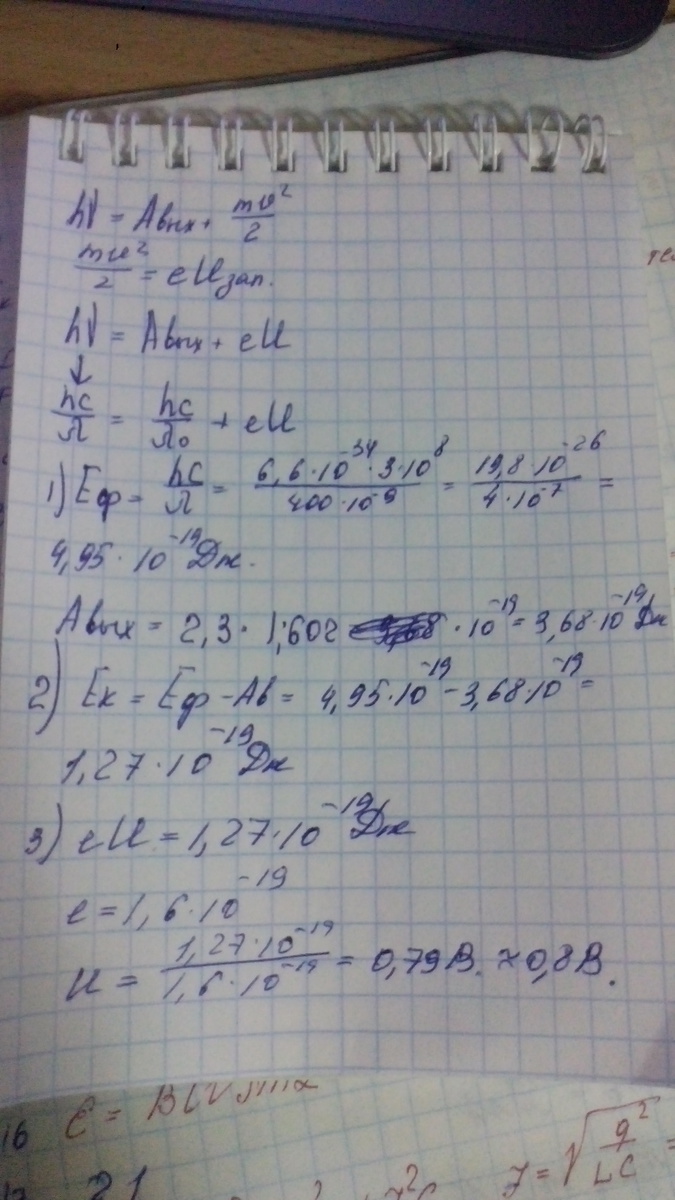 hν = Aвых + mv²/2
mv²/2 = eUзап.
hν = Aвых + eU
↓
hc/λ = hc/λ₀ + eU
1) Eф = hc/λ = 6,6·10⁻³⁴·3·10⁸/400·10⁻⁹ = 19,8·10⁻²⁶/4·10⁻⁷ =
4,95·10⁻¹⁹ Дж.
Aвых = 2,3·1,602 ·10⁻¹⁹ = 3,68·10⁻¹⁹ Дж
2) Eк = Eф - Aв = 4,95·10⁻¹⁹ - 3,68·10⁻¹⁹ =
1,27·10⁻¹⁹ Дж
3) eU = 1,27·10⁻¹⁹ Дж
e = 1,6·10⁻¹⁹
U = 1,27·10⁻¹⁹/1,6·10⁻¹⁹ = 0,79 В. ≈ 0,8 В.
16 Ɛ = BLV sinα